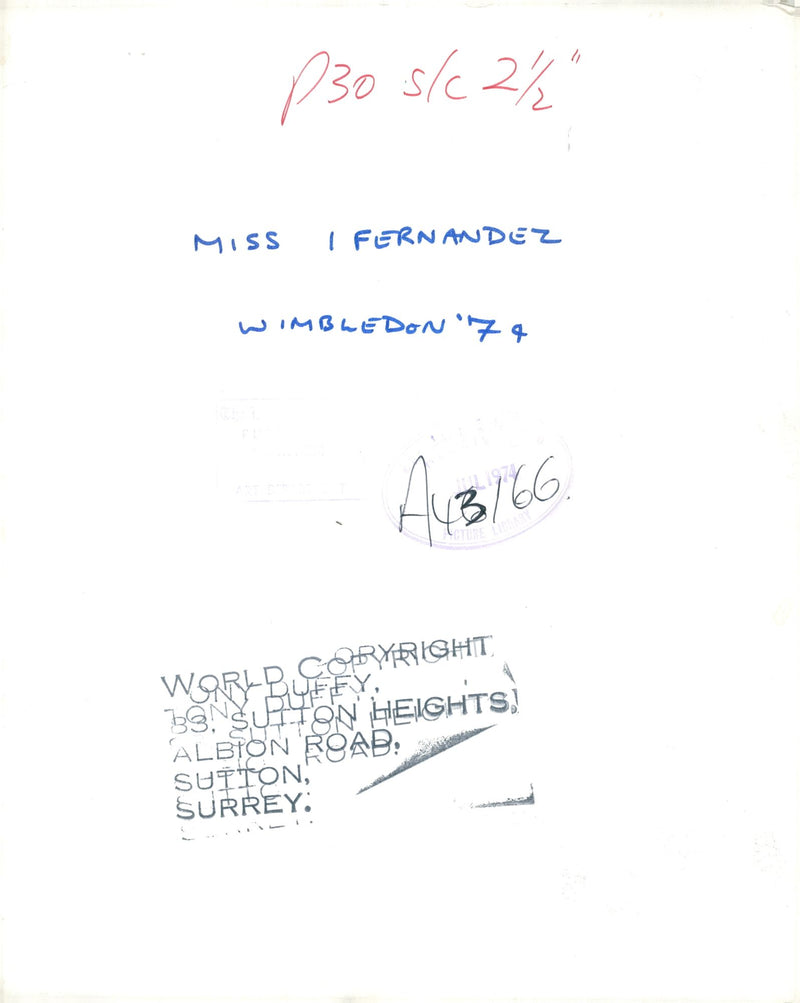 P30 s/c 2½"
MISS I FERNANDEZ
WIMBLEDON '74
JUL 1974
A43/66.
PICTURE LIBRARY
WORLD COPYRIGHT
TONY DUFFY,
83, SUTTON HEIGHTS,
ALBION ROAD,
SUTTON,
SURREY.